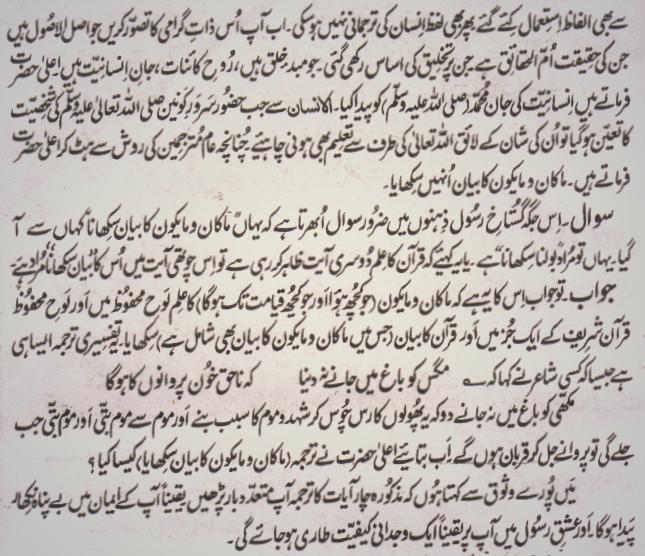 سے بھی الفاظ استعمال کئے گئے پھر بھی لفظ انسان کی ترجمانی نہیں ہوسکی۔ اب آپ اُس ذاتِ گرامی کا تصوّر کریں جو اصل الاصُول ہیں
جن کی حقیقت اُمّ الحقائق ہے جن پر تخلیق کی اساس رکھی گئی۔ جو مبدءِ خلق ہیں، رُوحِ کائنات، جانِ انسانیّت ہیں۔ اعلیٰ حضرت
فرماتے ہیں انسانیّت کی جان مُحمّد (صلی اللہ علیہ وسلّم) کو پیدا کیا۔ الانسان سے جب حضُور سَرورِ کونین صلی اللہ تعالیٰ علیہ وسلّم کی شخصیّت
کا تعیّن ہوگیا تو اُن کی شان کے لائق اللہ تعالیٰ کی طرف سے تعلیم بھی ہونی چاہئیے چُنانچہ عام مُترجمین کی روش سے ہٹ کر اعلیٰ حضرت
فرماتے ہیں۔ ماکان و مایکون کا بیان اُنہیں سکھایا۔
سوال۔ اِس جگہ گستاخِ رسُول ذہنوں میں ضرور سوال اُبھرتا ہے کہ یہاں "ماکان و مایکون کا بیان سکھانا" کہاں سے آ
گیا۔ یہاں تو مُراد بولنا سکھانا ہے۔ یا یہ کہئے کہ قرآن کا علم دُوسری آیت ظاہر کررہی ہے تو اِس چوتھی آیت میں اُس کا "بیان سکھانا" مُراد ہے۔
جواب۔ تو جواب اِس کا یہ ہے کہ ماکان و مایکون (جو کچھ ہوُا اور جو کچھ قیامت تک ہوگا) کا علم لَوحِ محفوظ میں اور لَوحِ محفوظ
قرآن شریف کے ایک جُز میں اَور قرآن کا بیان (جس میں ماکان و مایکون کا بیان بھی شامل ہے) سکھایا۔ یہ تفسیری ترجمہ ایسا ہی
ہے جیسا کہ کسی شاعر نے کہا کہ ؎ مگس کو باغ میں جانے نہ دینا کہ ناحق خُون پروانوں کا ہوگا
مکھی کو باغ میں نہ جانے دو کہ یہ پھُولوں کا رس چُوس کر شہد و موم کا سبب بنے اَور موم سے موم بتّی اَور موم بتّی جب
جلے گی تو پروانے جل کر قربان ہوں گے۔ اَب بتائیے اعلیٰ حضرت نے ترجمہ (ماکان و مایکون کا بیان سکھایا) کیسا کیا؟
مَیں پُورے وثوق سے کہتا ہُوں کہ مذکُورہ چار آیات کا ترجمہ آپ متعدّد بار پڑھیں یقیناً آپ کے ایمان میں بے پناہ نکھار
پَیدا ہوگا۔ اور عشقِ رسُول میں آپ پر یقیناً ایک وجدانی کیفیّت طاری ہوجائے گی۔